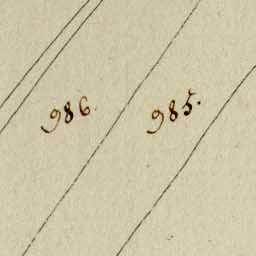 986.
985.